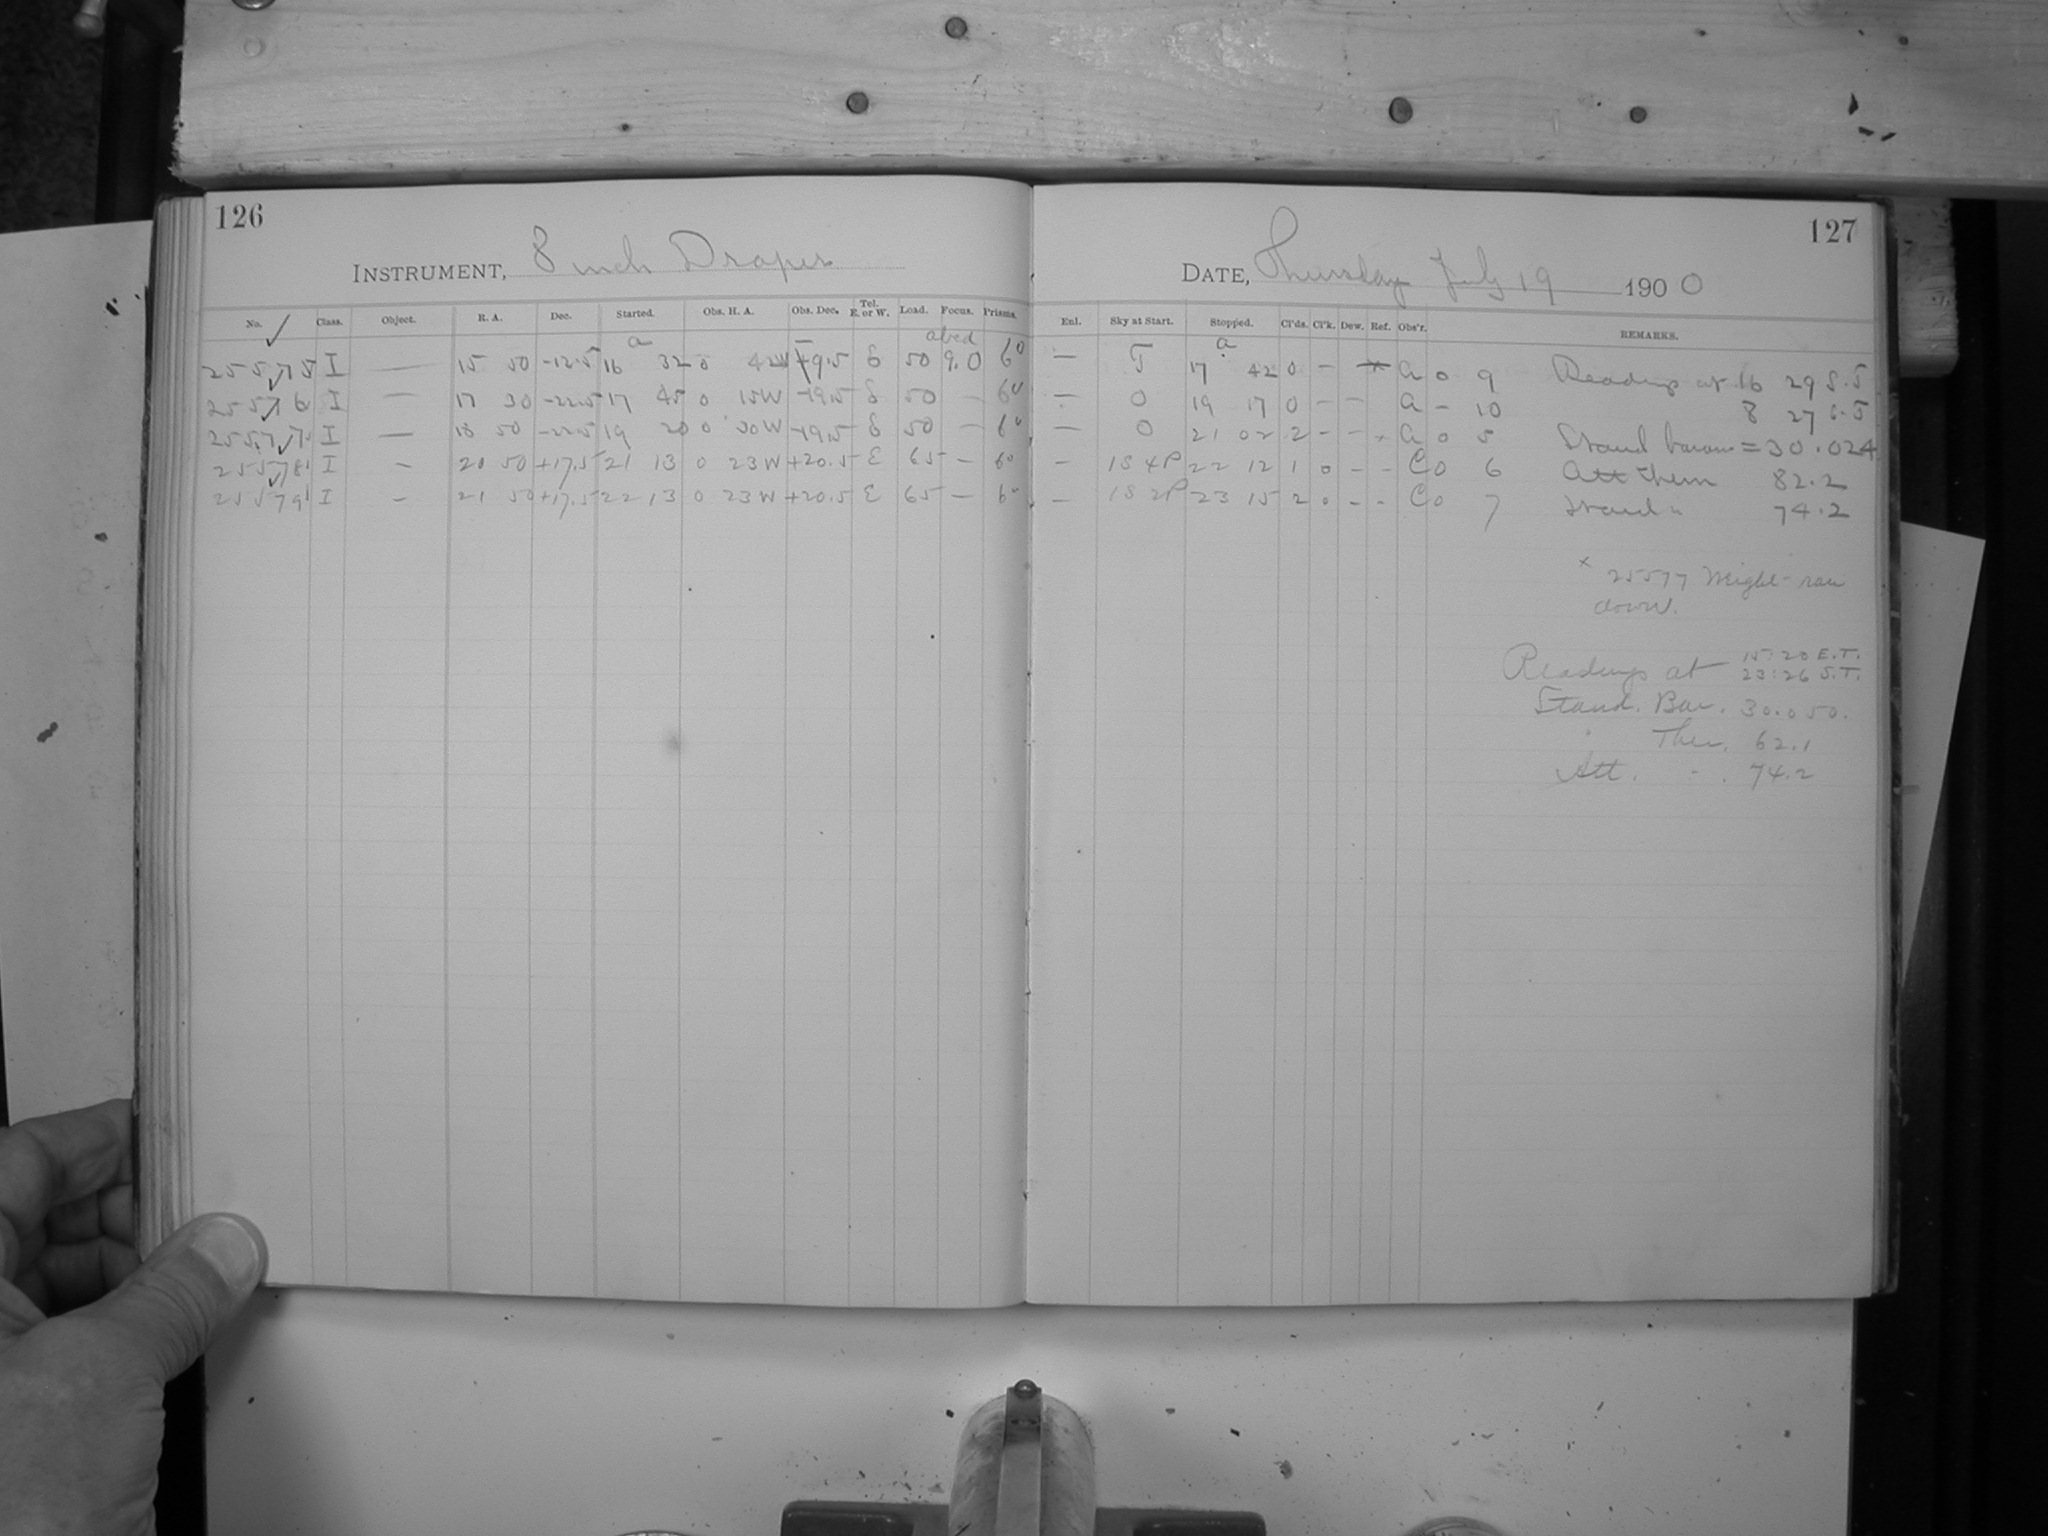 126
127
INSTRUMENT, 8 inch Draper
DATE, Thursday July 19 1900
No. Class. Object. R. A. Dec. Started. Obs. H. A. Obs. Dec. Tel. E. or W. Load. Focus. Prisms. Enl. Sky at Start. Stopped. Cl'ds. Cl'k. Dew. Ref. Obs'r. REMARKS.
25575 I — 15 50 -12.5 16 32 0 42W +9.5 E 50 9.0 6° — 5 17 42 0 - * a 0 9 Readings at 16 29 S.T
25576 I — 17 30 -22.5 17 45 0 15W -19.5 E 50 — 6° — 0 19 17 0 - - a - 10 8 27 E.T
25577 I — 18 50 -22.5 19 20 0 30W -19.5 E 50 — 6° — 0 21 02 2 - - x a 0 5 Stand barom = 30.024
25578 I — 20 50 +17.5 21 13 0 23W +20.5 E 65 — 6° — 1S 4P 22 12 1 0 - - C 0 6 Att Therm 82.2
25579 I — 21 50 +17.5 22 13 0 23W +20.5 E 65 — 6° — 1S 2P 23 15 2 0 - - C 0 7 Stand " 74.2
x 25577 Weight ran
down.
Readings at 15:20 E.T.
23:26 S.T.
Stand. Bar. 30.050.
" Ther. 62.1
Att. " . 74.2